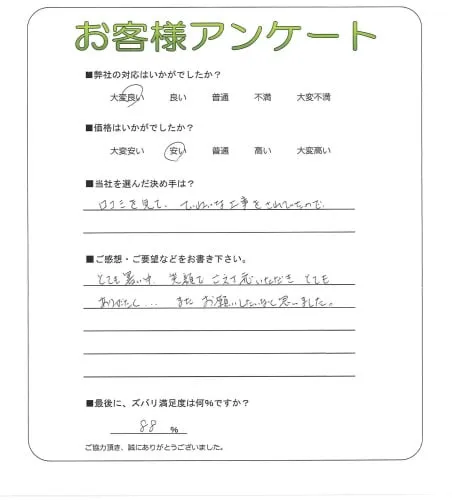 お客様アンケート
■弊社の対応はいかがでしたか？
大変良い 良い 普通 不満 大変不満
■価格はいかがでしたか？
大変安い 安い 普通 高い 大変高い
■当社を選んだ決め手は？
口コミを見て、ていねいな工事をされていたので、
■ご感想・ご要望などをお書き下さい。
とても暑い中、笑顔で いただき とても
ありがたく... また お願いしたいなと思いました。
■最後に、ズバリ満足度は何%ですか？
88 %
ご協力頂き、誠にありがとうございました。